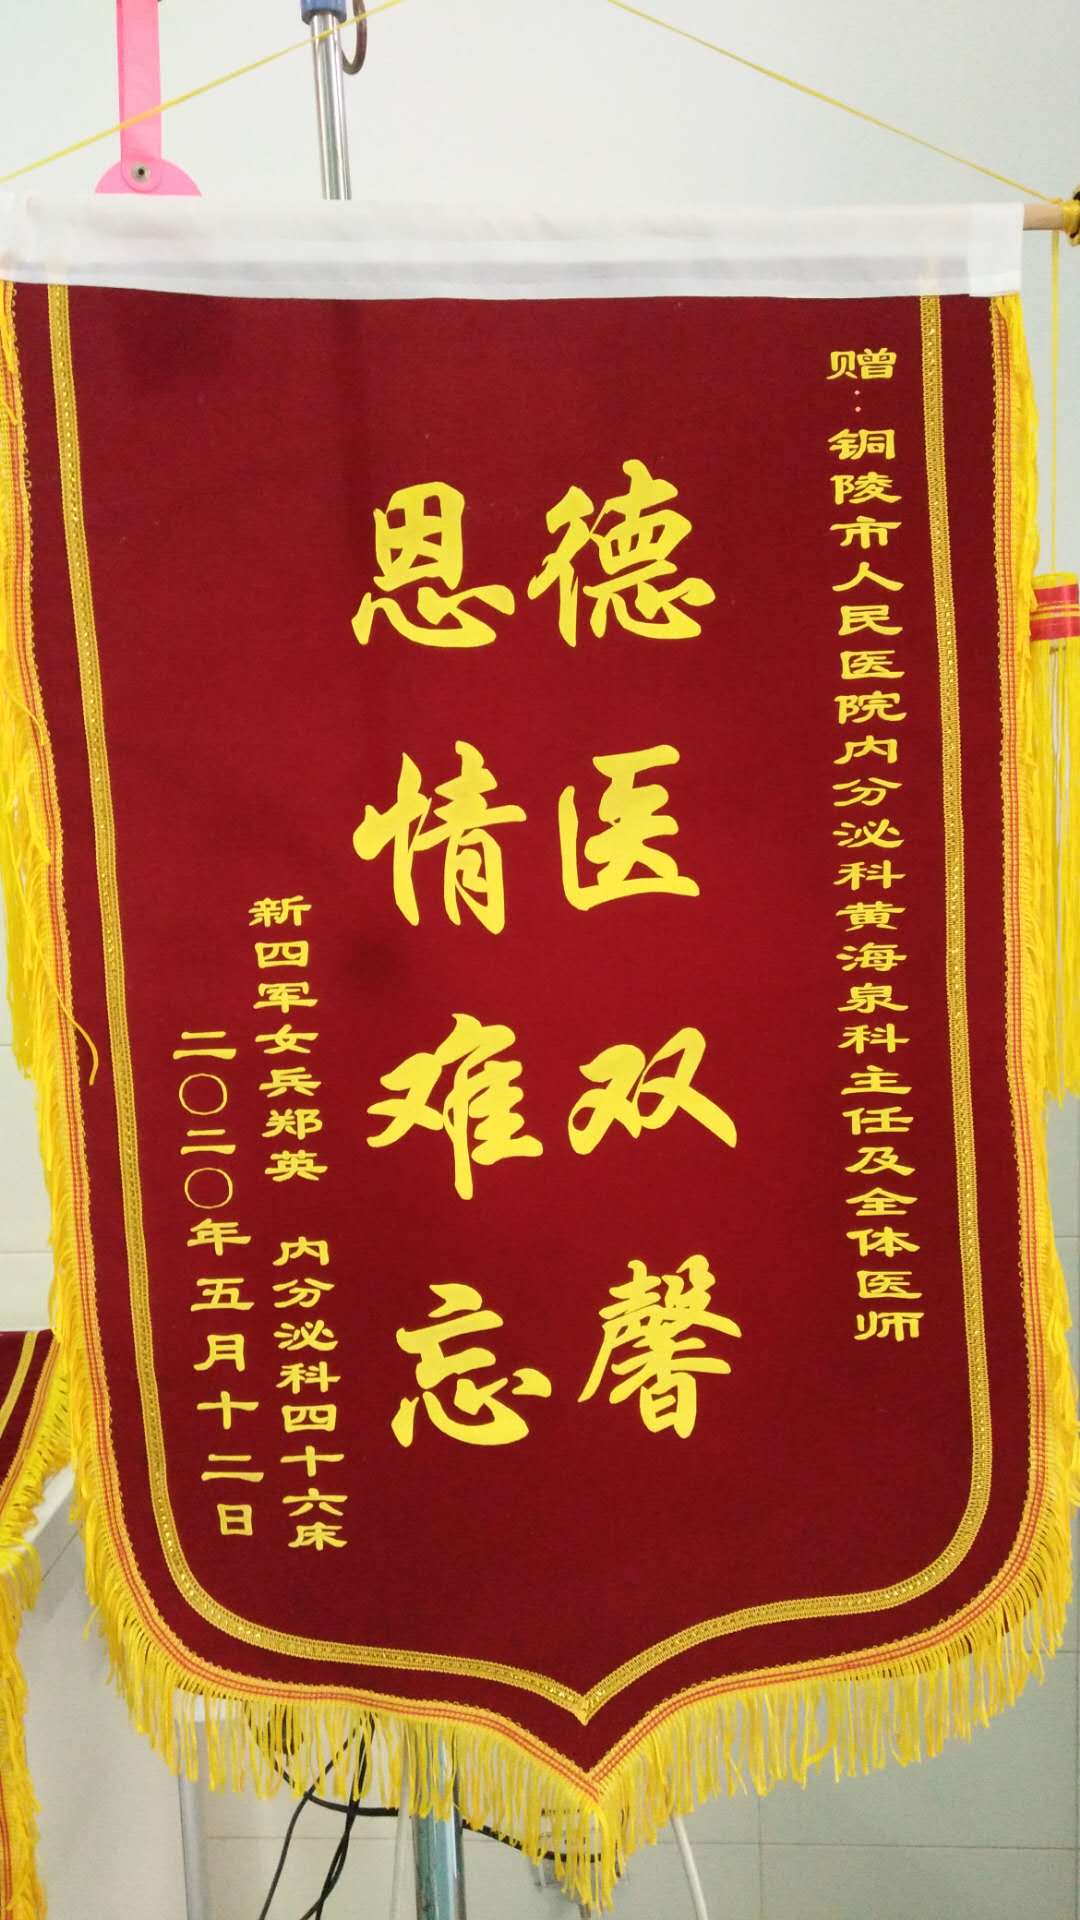 赠：铜陵市人民医院内分泌科黄海泉科主任及全体医师
德医双馨
恩情难忘
新四军女兵郑英 内分泌科四十六床
二〇二〇年五月十二日